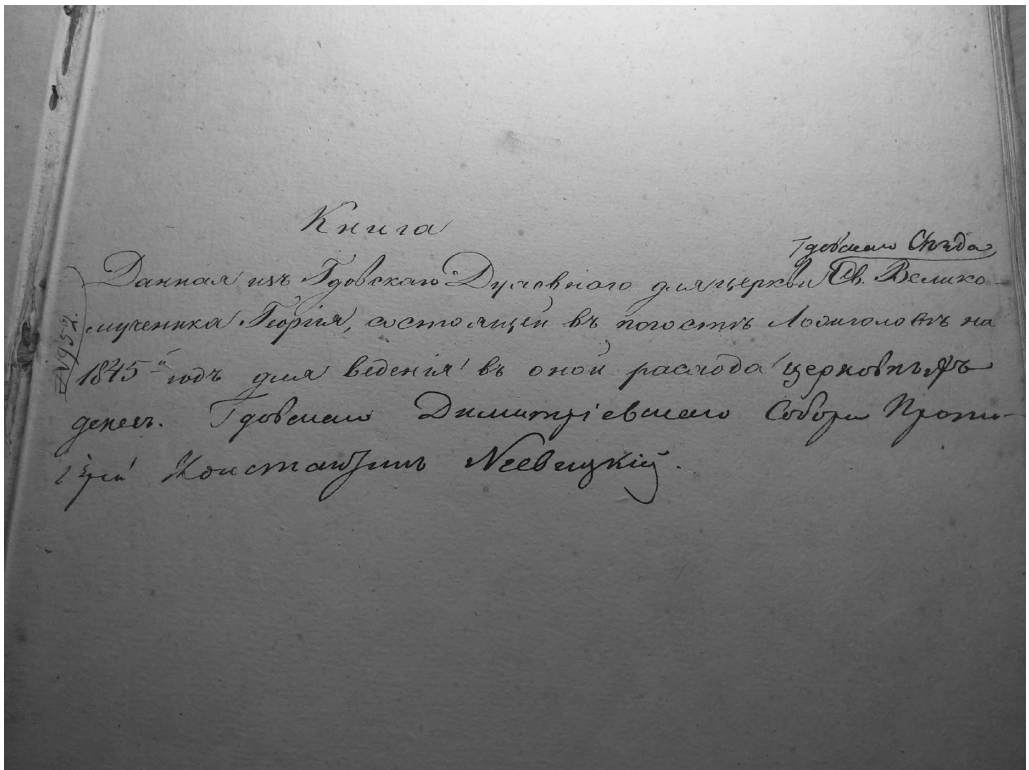 Книга
Гдовскаго Съѣзда
Данная изъ Гдовскаго Духовнаго для церкви Св. Велико
мученика Георгія, состоящей въ погостѣ Ложголовѣ на
1845й годъ для веденія въ оной расхода церковныхъ
денегъ. Гдовскаго Димитріевскаго Собора Прото-
іерей Константинъ